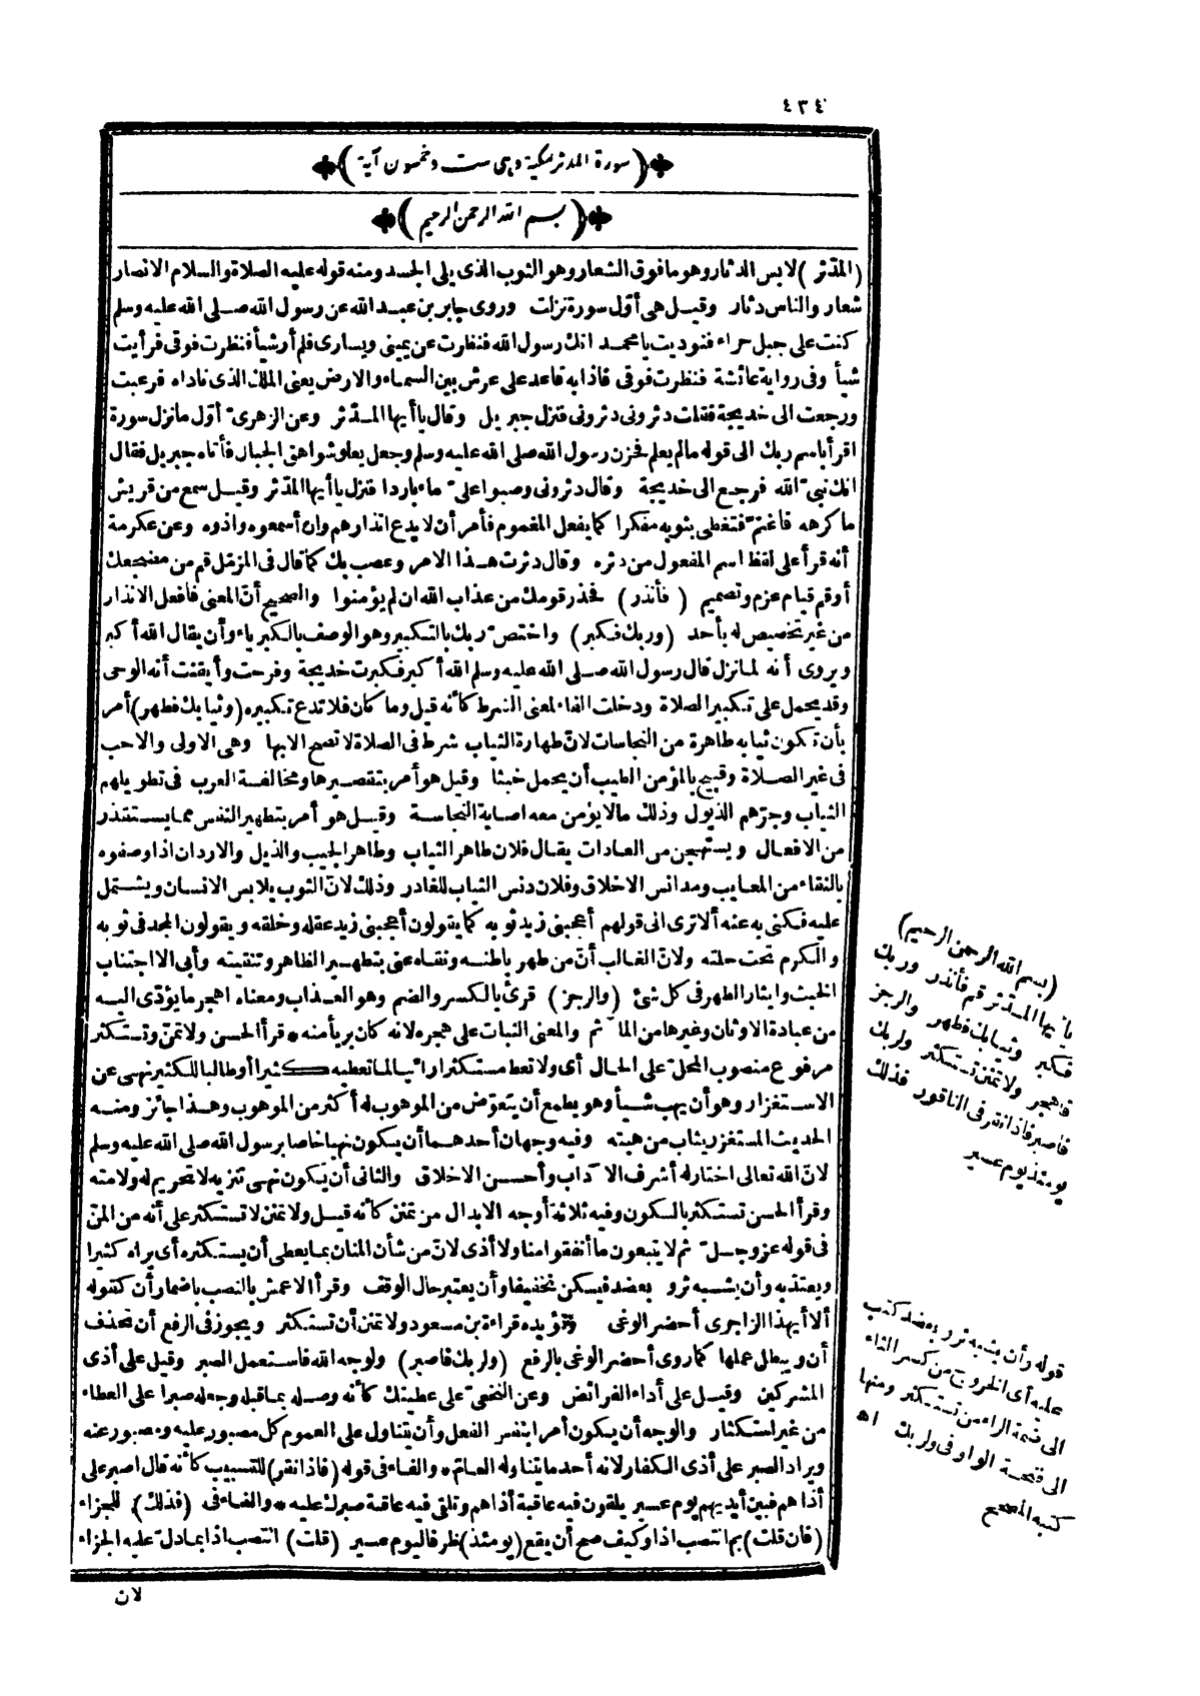 ٤٣٤
(سورة المدثر مكية وهى ست وخمسون آية)
(بسم الله الرحمن الرحيم)
(المدّثر) لابس الدثار وهو ما فوق الشعار وهو الثوب الذى يلى الجسد ومنه قوله عليه الصلاة والسلام الانصار
شعار والناس دثار وقيل هى أوّل سورة نزلت وروى جابر بن عبد الله عن رسول الله صلى الله عليه وسلم
كنت على جبل حراء فنوديت يا محمد انك رسول الله فنظرت عن يمينى ويسارى فلم أر شيأ فنظرت فوقى فرأيت
شيأ وفى رواية عائشة فنظرت فوقى فاذا به قاعد على عرش بين السماء والارض يعنى الملك الذى ناداه فرعبت
ورجعت الى خديجة فقلت دثرونى دثرونى فنزل جبريل وقال يا أيها المدّثر وعن الزهرى أوّل ما نزل سورة
اقرأ باسم ربك الى قوله ما لم يعلم فحزن رسول الله صلى الله عليه وسلم وجعل يعلو شواهق الجبال فأتاه جبريل فقال
انك نبىّ الله فرجع الى خديجة وقال دثرونى وصبوا علىّ ماء باردا فنزل يا أيها المدّثر وقيل سمع من قريش
ما كرهه فاغتم فتغطى بثوبه مفكرا كما يفعل المغموم فأمر أن لا يدع انذارهم وان أسمعوه واذوه وعن عكرمة
أنه قرأ على لفظ اسم المفعول من دثره وقال دثرت هذا الامر وعصب بك كما قال فى المزمّل قم من مضجعك
أو قم قيام عزم وتصميم (فأنذر) فحذر قومك من عذاب الله ان لم يؤمنوا والصحيح أنّ المعنى فافعل الانذار
من غير تخصيص له بأحد (وربك فكبر) واختصّ ربك بالتكبير وهو الوصف بالكبرياء وأن يقال الله أكبر
ويروى أنه لما نزل قال رسول الله صلى الله عليه وسلم الله أكبر فكبرت خديجة وفرحت وأيقنت أنه الوحى
وقد يحمل على تكبير الصلاة ودخلت الفاء لمعنى الشرط كأنه قيل وما كان فلا تدع تكبيره (وثيابك فطهر) أمر
بأن تكون ثيابه طاهرة من النجاسات لانّ طهارة الثياب شرط فى الصلاة لا تصح الابها وهى الاولى والاحب
فى غير الصلاة وقبيح بالمؤمن الطيب أن يحمل خبثا وقيل هو أمر بتقصيرها ومخالفة العرب فى تطويلهم
الثياب وجرّهم الذيول وذلك ما لا يؤمن معه اصابة النجاسة وقيل هو أمر بتطهير النفس مما يستقذر
من الافعال ويستهجن من العادات يقال فلان طاهر الثياب وطاهر الجيب والذيل والاردان اذا وصفوه
بالنقاء من المعايب ومدانس الاخلاق وفلان دنس الثياب للغادر وذلك لانّ الثوب يلابس الانسان ويشتمل
عليه فكنى به عنه ألا ترى الى قولهم أعجبنى زيد ثوبه كما يقولون أعجبنى زيد عقله وخلقه ويقولون المجد فى ثوبه
والكرم تحت حلته ولانّ الغالب أنّ من طهر باطنه ونقاه عنى بتطهير الظاهر وتنقيته وأبى الا اجتناب
الخبث وايثار الطهر فى كل شئ (والرجز) قرئ بالكسر والضم وهو العذاب ومعناه اهجر ما يؤدّى اليه
من عبادة الاوثان وغيرها من المآثم والمعنى الثبات على هجره لانه كان بريأ منه * قرأ الحسن ولا تمنّ وتستكثر
مرفوع منصوب المحلّ على الحال أى ولا تعط مستكثرا رائيا لما تعطيه كثيرا أو طالبا للكثير نهى عن
الاستغزار وهو أن يهب شيأ وهو يطمع أن يتعوّض من الموهوب له أكثر من الموهوب وهذا جائز ومنه
الحديث المستغزر يثاب من هبته وفيه وجهان أحدهما أن يكون نهيا خاصا برسول الله صلى الله عليه وسلم
لانّ الله تعالى اختار له أشرف الآداب وأحسن الاخلاق والثانى أن يكون نهى تنزيه لا تحريم له ولامته
وقرأ الحسن تستكثر بالسكون وفيه ثلاثة أوجه الابدال من تمنن كأنه قيل ولا تمنن لا تستكثر على أنه من المنّ
فى قوله عز وجلّ ثم لا يتبعون ما أنفقوا منا ولا أذى لانّ من شأن المنان بما يعطى أن يستكثره أى يراه كثيرا
ويعتد به وأن يشبه ثرو بعضد فيسكن تخفيفا وأن يعتبر حال الوقف وقرأ الاعمش بالنصب باضمار أن كقوله
ألا أيهذا الزاجرى أحضر الوغى وتؤيده قراءة بن مسعود ولا تمنن أن تستكثر ويجوز فى الرفع أن تحذف
أن ويبطل عملها كما روى أحضر الوغى بالرفع (ولربك فاصبر) ولوجه الله فاستعمل الصبر وقيل على أذى
المشركين وقيل على أداء الفرائض وعن النخعىّ على عطيتك كأنه وصله بما قبله وجعله صبرا على العطاء
من غير استكثار والوجه أن يكون أمرا بنفس الفعل وأن يتناول على العموم كل مصبور عليه ومصبور عنه
ويراد الصبر على أذى الكفار لانه أحد ما يتناوله العامّ * والفاء فى قوله (فاذا نقر) للتسبيب كأنه قال اصبر على
أذاهم فبين أيديهم يوم عسير يلقون فيه عاقبة أذاهم وتلقى فيه عاقبة صبرك عليه * والفاء فى (فذلك) للجزاء
(فان قلت) بم انتصب اذا وكيف صح أن يقع (يومئذ) ظرفا ليوم عسير (قلت) انتصب اذا بما دلّ عليه الجزاء
لان
(بسم الله الرحمن الرحيم)
يا أيها المدّثر قم فأنذر وربك
فكبر وثيابك فطهر والرجز
فاهجر ولا تمنن تستكثر ولربك
فاصبر فاذا نقر فى الناقور فذلك
يومئذ يوم عسير
قوله وأن يشبه ثرو بعضد كتب
عليه أى الخروج من كسر الثاء
الى ضمة الراء من تستكثر ومنها
الى فتحة الواو فى ولربك اه
كتبه المصحح